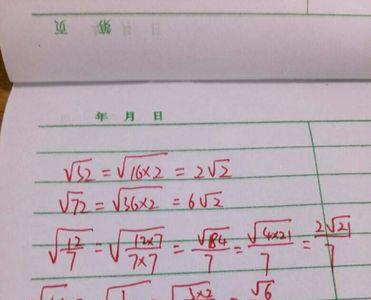 第 年 月 日 页
年 月 日
√32 = √(16×2) = 2√2
√72 = √(36×2) = 6√2
√(12/7) = √((12×7)/(7×7)) = √84/7 = √(4×21)/7 = 2√21/7